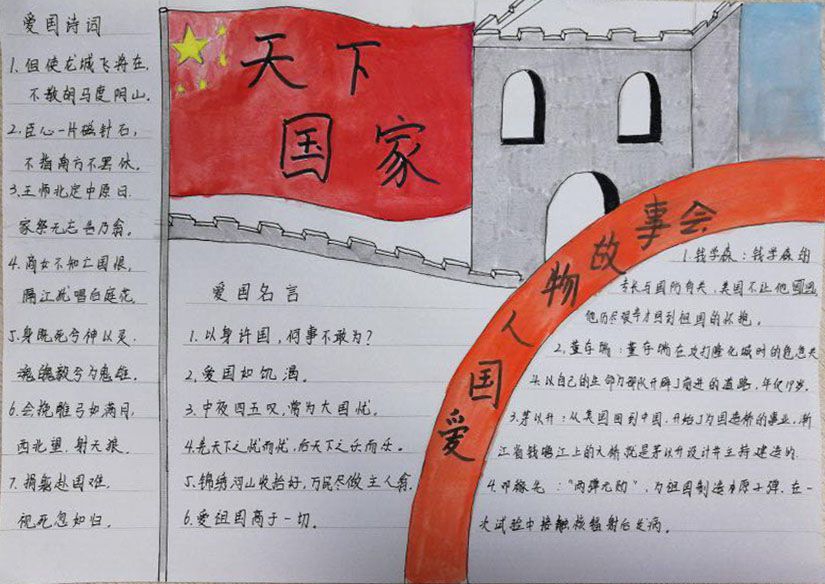 天下
国家
爱国诗词
1.但使龙城飞将在,
不教胡马度阴山。
2.臣心一片磁针石,
不指南方不罢休。
3.王师北定中原日
家祭无忘告乃翁。
4.商女不知亡国恨,
隔江犹唱后庭花
5.身既死兮神以灵.
魂魄毅兮为鬼雄.
6.会挽雕弓如满月,
西北望.射天狼.
7.捐躯赴国难,
视死忽如归.
爱国名言
1.以身许国,何事不敢为?
2,爱国如饥渴。
3.中夜四五叹,常为大国忧。
4.先天下之忧而忧,后天下之乐而乐。
5.锦绣河山收拾好,万民尽做主人翁.
6.爱祖国高于一切。
爱国人物故事会
1.钱学森:钱学森的
专长与国防有关,美国不让他回国
他历尽艰辛才回到祖国的怀抱。
2,董存瑞:董存瑞在攻打隆化城时的危急关
以自己的生命为部队开辟了前进的道路,年仅19岁.
3.茅以升:从美国回到中国,开始了为国造桥的事业,浙
江省钱塘江上的大桥就是茅以升设计并主持建造的.
4.邓稼先:"两弹元勋",为祖国制造原子弹.在一
次试验中接触核辐射后发病。